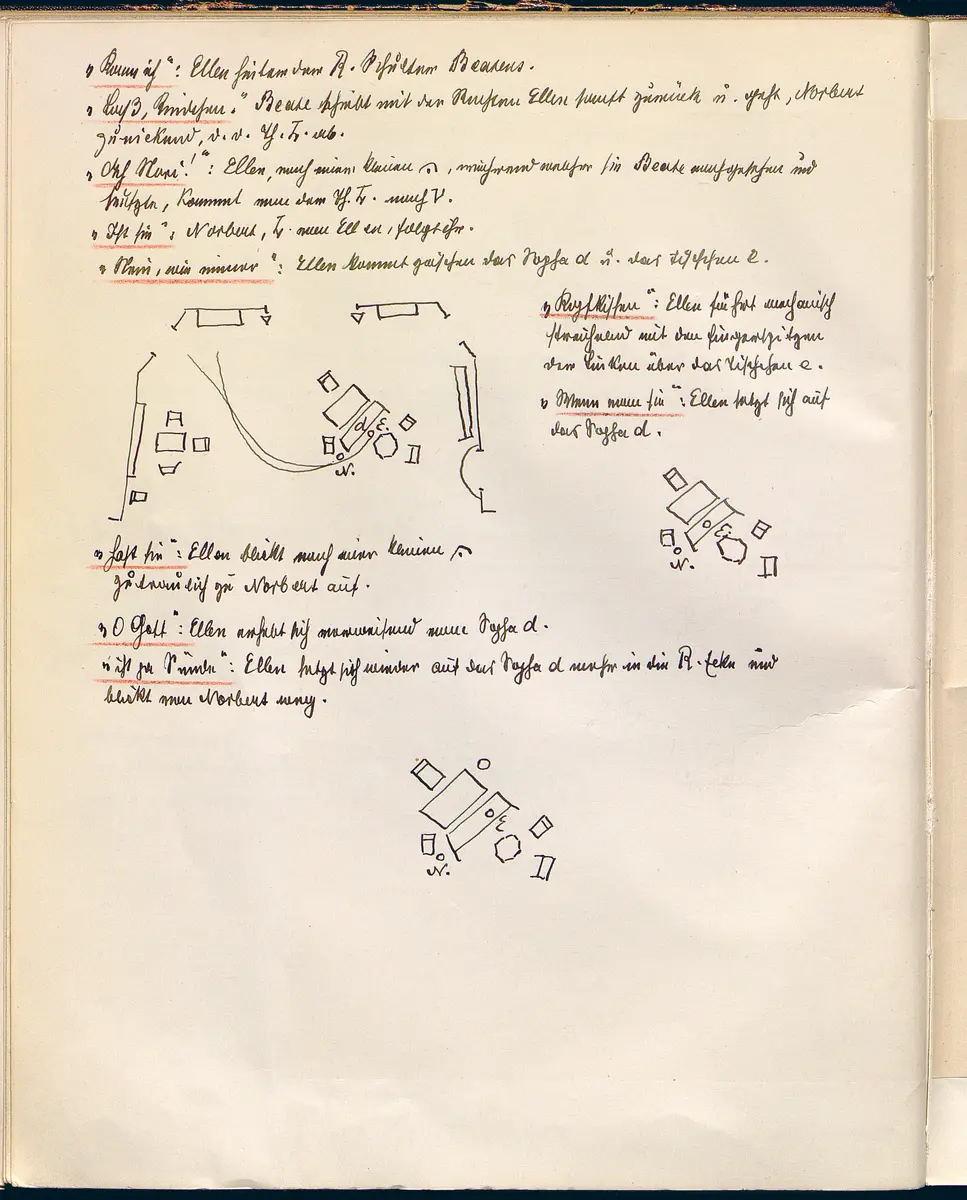 "Kann ich": Ellen hinter der R. Schulter Beatens.
"Laß, Kindchen." Beate schiebt mit der Rechten Ellen sanft zurück u. geht, Norbert
zunickend, d. d. Th. Z. ab.
"Ach Nori!": Ellen, nach einer kleinen 𝄐, während welcher sie Beate nachgesehen und
seufzte, kommt von der Th. Z. nach V.
"Ist sie": Norbert, L. von Ellen, folgt ihr.
"Nein, wie immer": Ellen kommt zwischen das Sopha d u. das Tischchen e.
"Kopfkissen": Ellen fährt mechanisch
streichelnd mit den Fingerspitzen
der Linken über das Tischchen e.
"Wenn man sie": Ellen setzt sich auf
das Sopha d.
d E.
N.
E.
N.
"Hast sie": Ellen blickt nach einer kleinen 𝄐
zutraulich zu Norbert auf.
"O Gott": Ellen erhebt sich verweisend vom Sopha d.
"ist ja Sünde": Ellen setzt sich wieder auf das Sopha d mehr in die R. Ecke und
blickt von Norbert weg.
E
N.